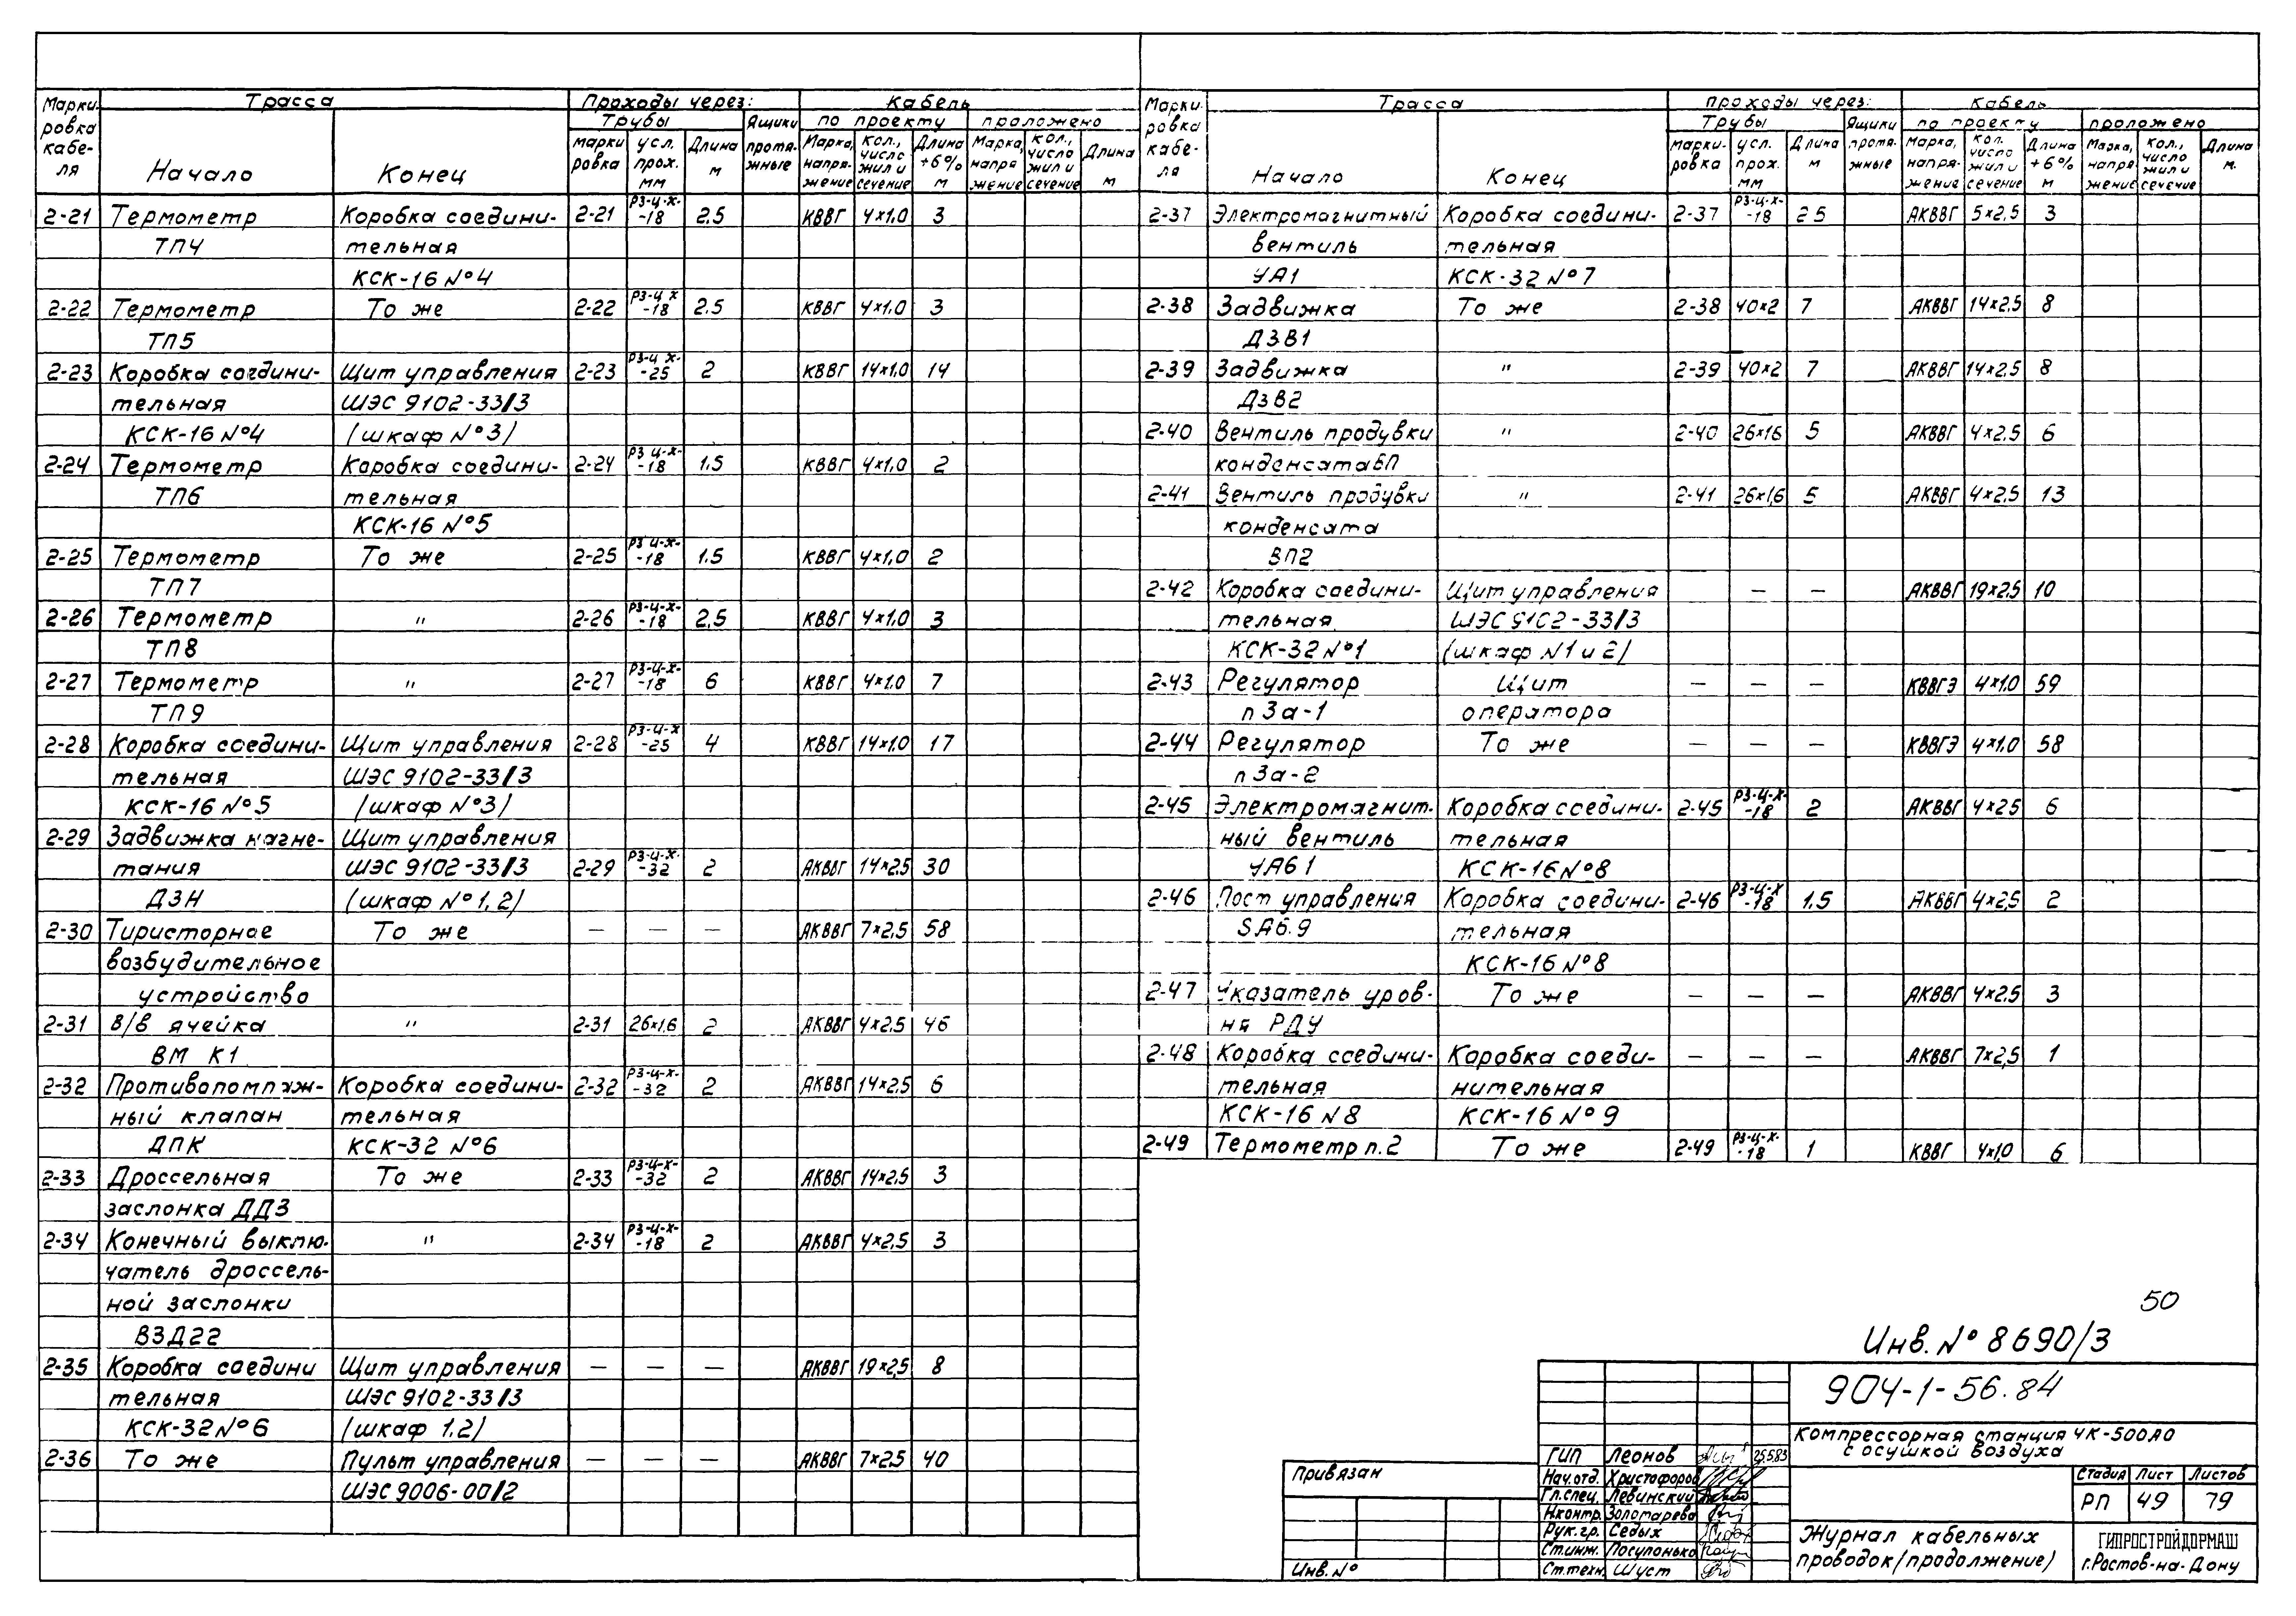 Марки- Трасса Проходы через: Кабель
ровка Трубы Ящики по проекту проложено
кабе- марки усл. Длина протя- Марка, кол., Длина Марка, кол., Длина
ля Начало Конец ровка прох. м жные напря- число +6% напря число м
мм жение жил и м жение жил и
сечение сечение
2-21 Термометр Коробка соедини- 2-21 РЗ-Ц-Х-18 2.5 КВВГ 4х1,0 3
ТП4 тельная
КСК-16 №4
2-22 Термометр То же 2-22 РЗ-Ц Х-18 2.5 КВВГ 4х1,0 3
ТП5
2-23 Коробка соедини- Щит управления 2-23 РЗ-Ц Х-25 2 КВВГ 14х1,0 14
тельная ШЭС 9102-33/3
КСК-16 №4 (шкаф №3)
2-24 Термометр Коробка соедини- 2-24 РЗ Ц-Х-18 1.5 КВВГ 4х1,0 2
ТП6 тельная
КСК-16 №5
2-25 Термометр То же 2-25 РЗ Ц-Х-18 1.5 КВВГ 4х1,0 2
ТП7
2-26 Термометр " 2-26 РЗ-Ц-Х-18 2,5 КВВГ 4х1,0 3
ТП8
2-27 Термометр " 2-27 РЗ-Ц-Х-18 6 КВВГ 4х1,0 7
ТП9
2-28 Коробка соедини- Щит управления 2-28 РЗ-Ц-Х-25 4 КВВГ 14х1,0 17
тельная ШЭС 9102-33/3
КСК-16 №5 (шкаф №3)
2-29 Задвижка нагне- Щит управления
тания ШЭС 9102-33/3 2-29 РЗ-Ц-Х-32 2 АКВВГ 14х2,5 30
ДЗН (шкаф №1, 2)
2-30 Тиристорное То же — — — АКВВГ 7х2,5 58
возбудительное
устройство
2-31 В/в ячейка " 2-31 26х1,6 2 АКВВГ 4х2,5 46
ВМ К1
2-32 Противопомпаж- Коробка соедини- 2-32 РЗ-Ц-Х-32 2 АКВВГ 14х2,5 6
ный клапан тельная
ДПК КСК-32 №6
2-33 Дроссельная То же 2-33 РЗ-Ц-Х-32 2 АКВВГ 14х2,5 3
заслонка ДДЗ
2-34 Конечный выклю- " 2-34 РЗ-Ц-Х-18 2 АКВВГ 4х2,5 3
чатель дроссель-
ной заслонки
ВЗД22
2-35 Коробка соедини Щит управления — — — АКВВГ 19х2,5 8
тельная ШЭС 9102-33/3
КСК-32 №6 (шкаф 1,2)
2-36 То же Пульт управления — — — АКВВГ 7х2,5 40
ШЭС 9006-00/2
Марки- Трасса проходы через: Кабель
ровка Трубы Ящики по проекту проложено
кабе- марки- усл. Длина протя- Марка, кол. Длина Марка, кол., Длина
ля Начало Конец ровка прох. м жные напря- число +6% напря число м.
мм жение жил и м жение жил и
сечение сечение
2-37 Электромагнитный Коробка соедини- 2-37 РЗ-Ц-Х-18 25 АКВВГ 5х2,5 3
вентиль тельная
УА1 КСК-32 №7
2-38 Задвижка То же 2-38 40х2 7 АКВВГ 14х2,5 8
ДЗВ1
2-39 Задвижка " 2-39 40х2 7 АКВВГ 14х2,5 8
ДЗВ2
2-40 Вентиль продувки " 2-40 26х16 5 АКВВГ 4х2,5 6
конденсата БП
2-41 Вентиль продувки " 2-41 26х1,6 5 АКВВГ 4х2,5 13
конденсата
ВП2
2-42 Коробка соедини- Щит управления — — АКВВГ 19х2,5 10
тельная ШЭС 9102-33/3
КСК-32 №1 (шкаф N1 и 2)
2-43 Регулятор Щит — — — КВВГЭ 4х1,0 59
п 3а-1 оператора
2-44 Регулятор То же — — — КВВГЭ 4х1,0 58
п 3а-2
2-45 Электромагнит. Коробка соедини- 2-45 РЗ-Ц-Х-18 2 АКВВГ 4х25 6
ный вентиль тельная
УА61 КСК-16 №8
2-46 Пост управления Коробка соедини- 2-46 РЗ-Ц-Х-18 1,5 АКВВГ 4х2,5 2
SA6.9 тельная
КСК-16 №8
2-47 Указатель уров- То же — — — АКВВГ 4х2,5 3
ня РДУ
2-48 Коробка соедини- Коробка соеди- — — — АКВВГ 7х2,5 1
тельная нительная
КСК-16 N8 КСК-16 №9
2-49 Термометр п.2 То же 2-49 РЗ-Ц-Х-18 1 КВВГ 4х1,0 6
50
Инв. № 8690/3
904-1-56.84
Компрессорная станция 4К-500АО
с осушкой воздуха
ГИП Леонов 25.5.83
Нач.отд. Христофоров
Гл.спец. Левинский
Н.контр. Золотарева
Рук.гр. Седых
Ст.инж. Посупонько
Ст.техн. Шуст
Привязан
Инв. №
Стадия Лист Листов
РП 49 79
Журнал кабельных
проводок (продолжение)
ГИПРОСТРОЙДОРМАШ
г.Ростов-на-Дону